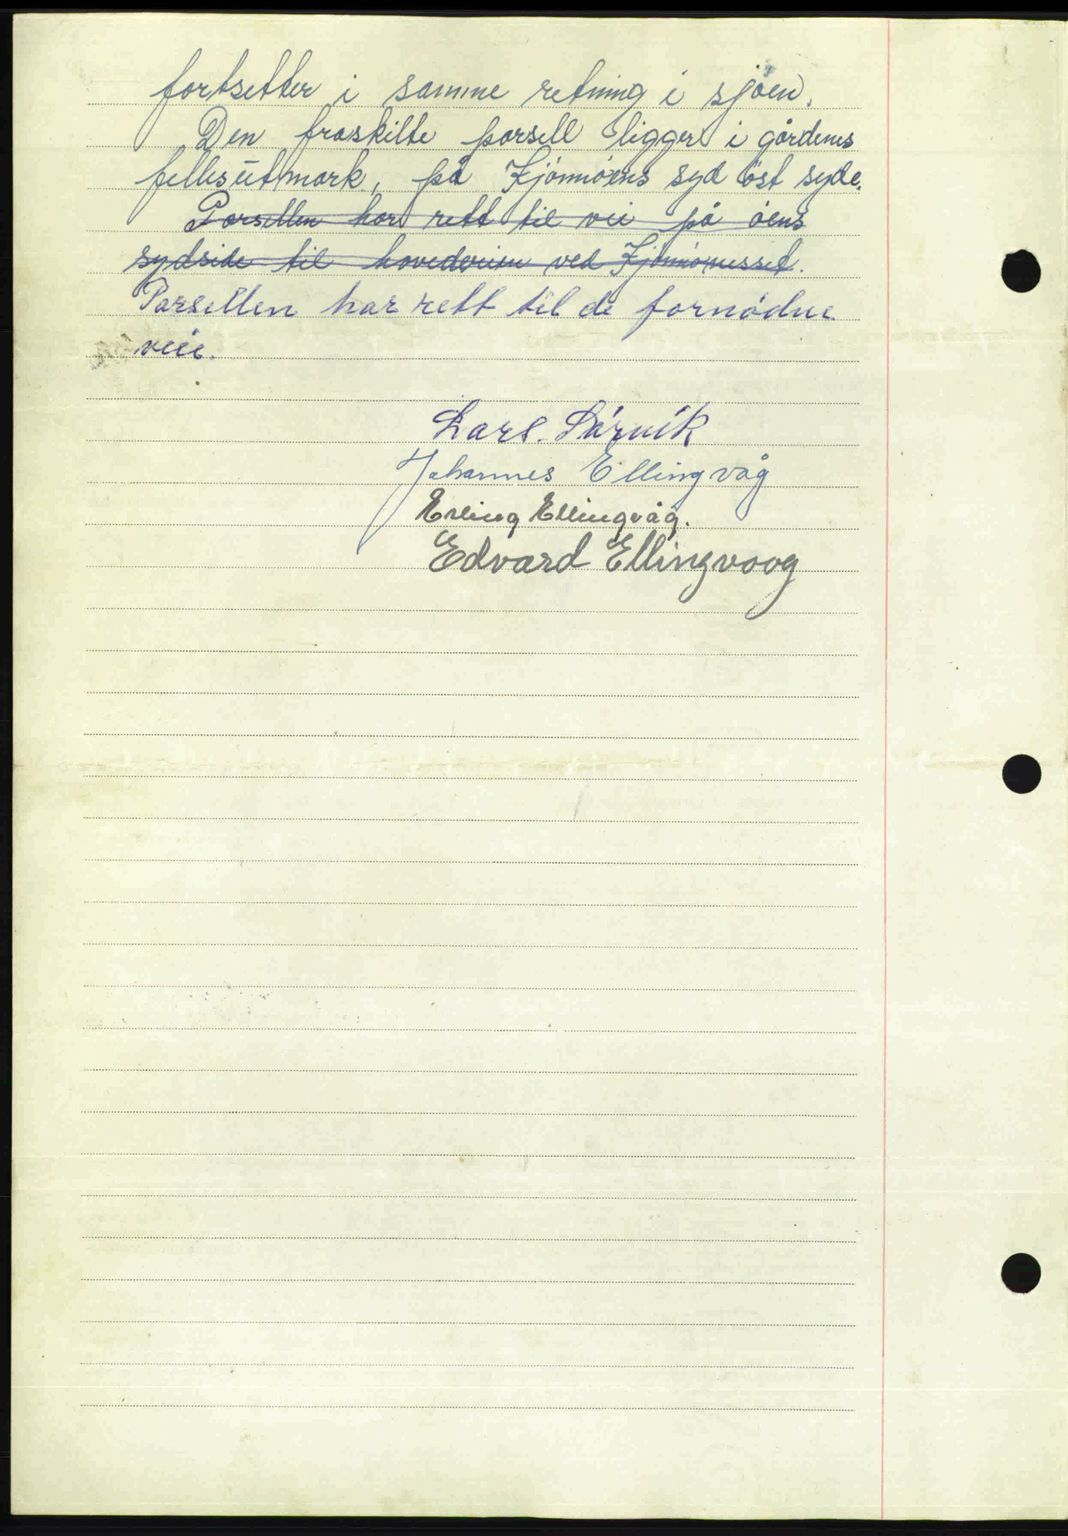 fortsetter i samme retning i sjøen.
Den fraskilte parsell ligger i gårdens
fellesutmark, på Kjønnøens syd øst syde.
Parsellen har rett til vei på øens
sydside til hovedveien ved Kjønnønesset.
Parsellen har rett til de fornødne
veie.
Lars. Sárvik
Johannes Ellingvåg
Erling Ellingvåg.
Edvard Ellingvoog